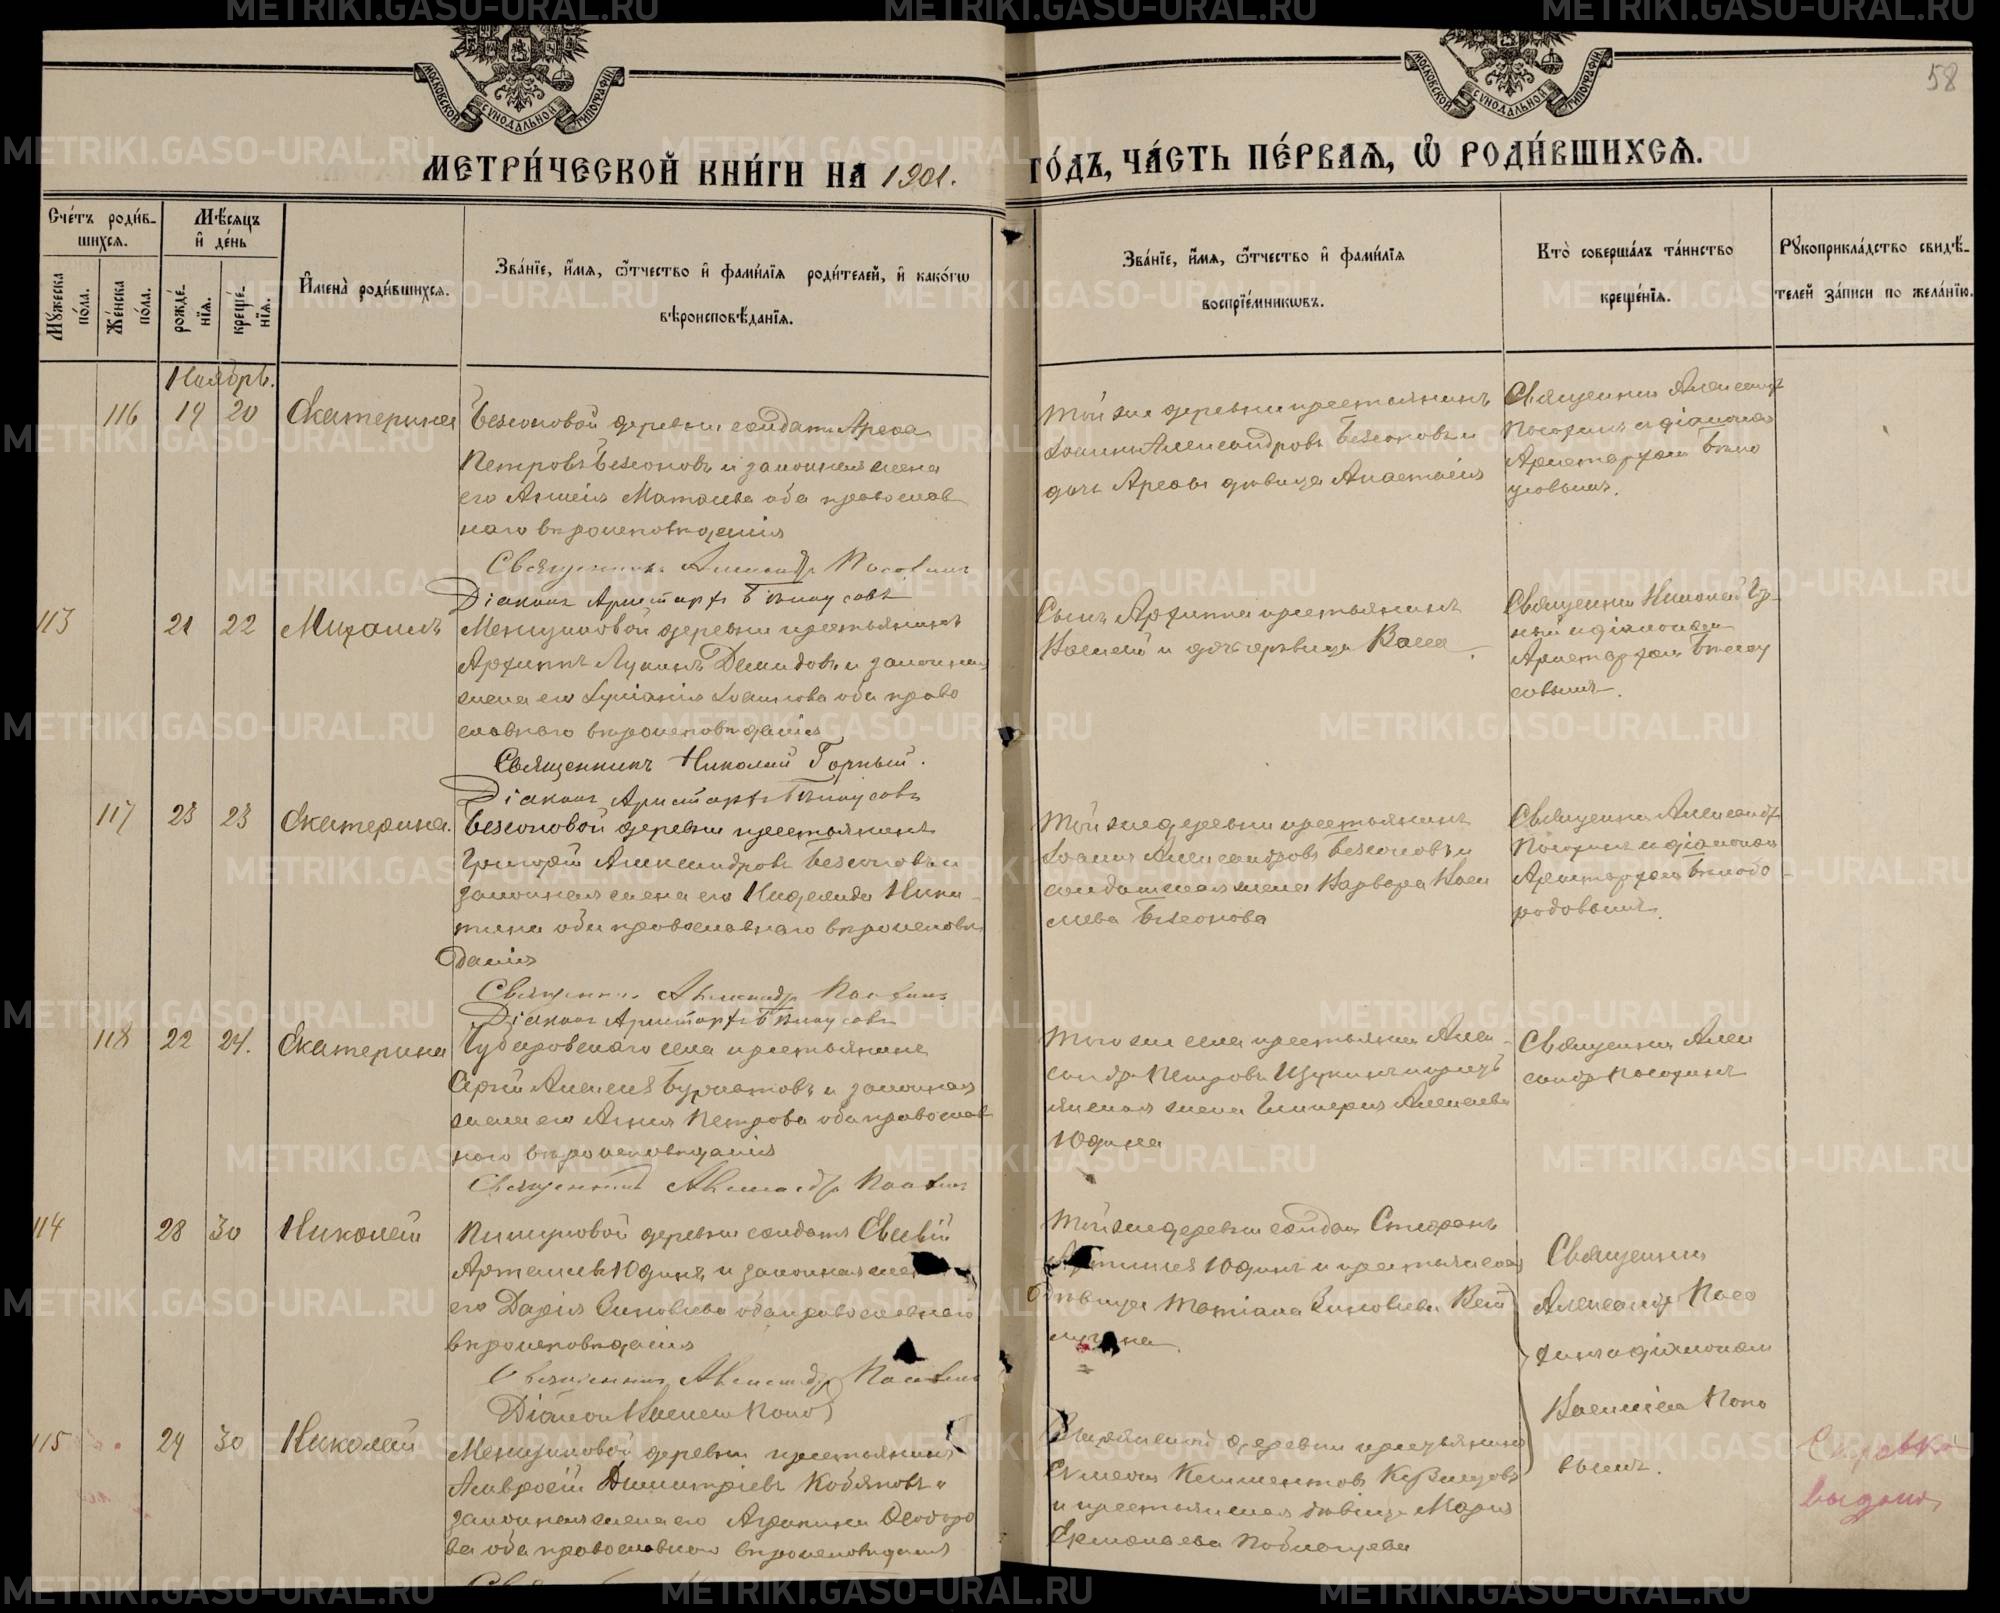 МОСКОВСКОЙ СѴНОДАЛЬНОЙ ТИПОГРАФІИ
МОСКОВСКОЙ СѴНОДАЛЬНОЙ ТИПОГРАФІИ
58
МЕТРИ́ЧЕСКОЙ КНИ́ГИ НА 1901.
ГО́ДЪ, ЧА́СТЬ ПЕ́РВАѦ, Ѽ РОДИ́ВШИХСѦ.
Сче́тъ роди́в-
шихсѧ.
Мꙋжеска по́ла.
Же́нска по́ла.
Мѣ́сѧцъ
и҆ де́нь
рожде́-
нїѧ.
креще́-
нїѧ.
И҆мена̀ роди́вшихсѧ.
Зва́нїе, и҆́мѧ, ѻ҆́тчество и҆ фами́лїѧ роди́телей, и҆ како́гѡ
вѣроисповѣ́данїѧ.
Зва́нїе, и҆́мѧ, ѻ҆́тчество и҆ фами́лїѧ
воспрїе́мникѡвъ.
Кто̀ соверша́лъ та́инство
креще́нїѧ.
Рꙋкоприкла́дство свидѣ́-
телей за́писи по жела́нїю.
Ноябрь.
116 19 20 Екатерина
Безсоновой деревни солдатъ
Петровъ Безсоновъ и законная жена
его Матѳиева оба православ
наго вѣроисповѣданія
Священникъ Александръ
Діаконъ Аристархъ Бѣлоусовъ
Той же деревни крестьянинъ
Іоаннъ Александровъ Безсоновъ и
дочь дѣвица Анастасія
Священникъ Александръ
и діаконъ
Аристархомъ Бѣло
усовымъ.
113 21 22 Михаилъ
деревни крестьянинъ
Архиппъ Лукинъ Демидовъ и законная
жена его Іоаннова оба право
славнаго вѣроисповѣданія
Священникъ Николай Горный.
Діаконъ Аристархъ Бѣлоусовъ
Сынъ Архиппа крестьянинъ
Василій и дочь дѣвица Васса.
Священникъ Николай Гор-
ный и діаконъ
Аристархомъ Бѣлоу
совымъ.
117 23 23 Екатерина.
Безсоновой деревни крестьянинъ
Григорій Александровъ Безсоновъ и
законная жена его Надежда Ники-
тина оба православнаго вѣроисповѣ
данія
Священникъ Александръ
Діаконъ Аристархъ Бѣлоусовъ
Той же деревни крестьянинъ
Іоаннъ Александровъ Безсоновъ и
солдатская жена Варвара Васи
льева Безсонова
Священникъ Александръ
и діаконъ
Аристархомъ Бѣлобо-
родовымъ.
118 22 24. Екатерина
села крестьянинъ
Сергій Алексѣевъ Бурматовъ и законная
жена его Анна Петрова оба православ
наго вѣроисповѣданія
Священникъ Александръ
Того же села крестьянинъ Алек-
сандръ Петровъ Щукинъ и кресть
янская жена Гликерія Алексѣева
Юдина
Священникъ Алек
сандръ
114 28 30 Николай
деревни солдатъ Евсевій
Артемьевъ Юдинъ и законная жена
его Дарія Зиновьева оба православнаго
вѣроисповѣданія
Священникъ Александръ
Діаконъ
Той же деревни солдатъ Стефанъ
Юдинъ и крестьянская
дѣвица Татіана Зиновьева
Священникъ
Александръ
и діаконом
115 29 30 Николай
деревни крестьянинъ
Амвросій Димитріевъ Кобяковъ и
законная жена его Агрипина Ѳеодоро
ва оба православнаго вѣроисповѣданія
деревни крестьянинъ
Климентовъ Кузнецовъ
и крестьянская дѣвица Марія
Справка
выдана
METRIKI.GASO-URAL.RU